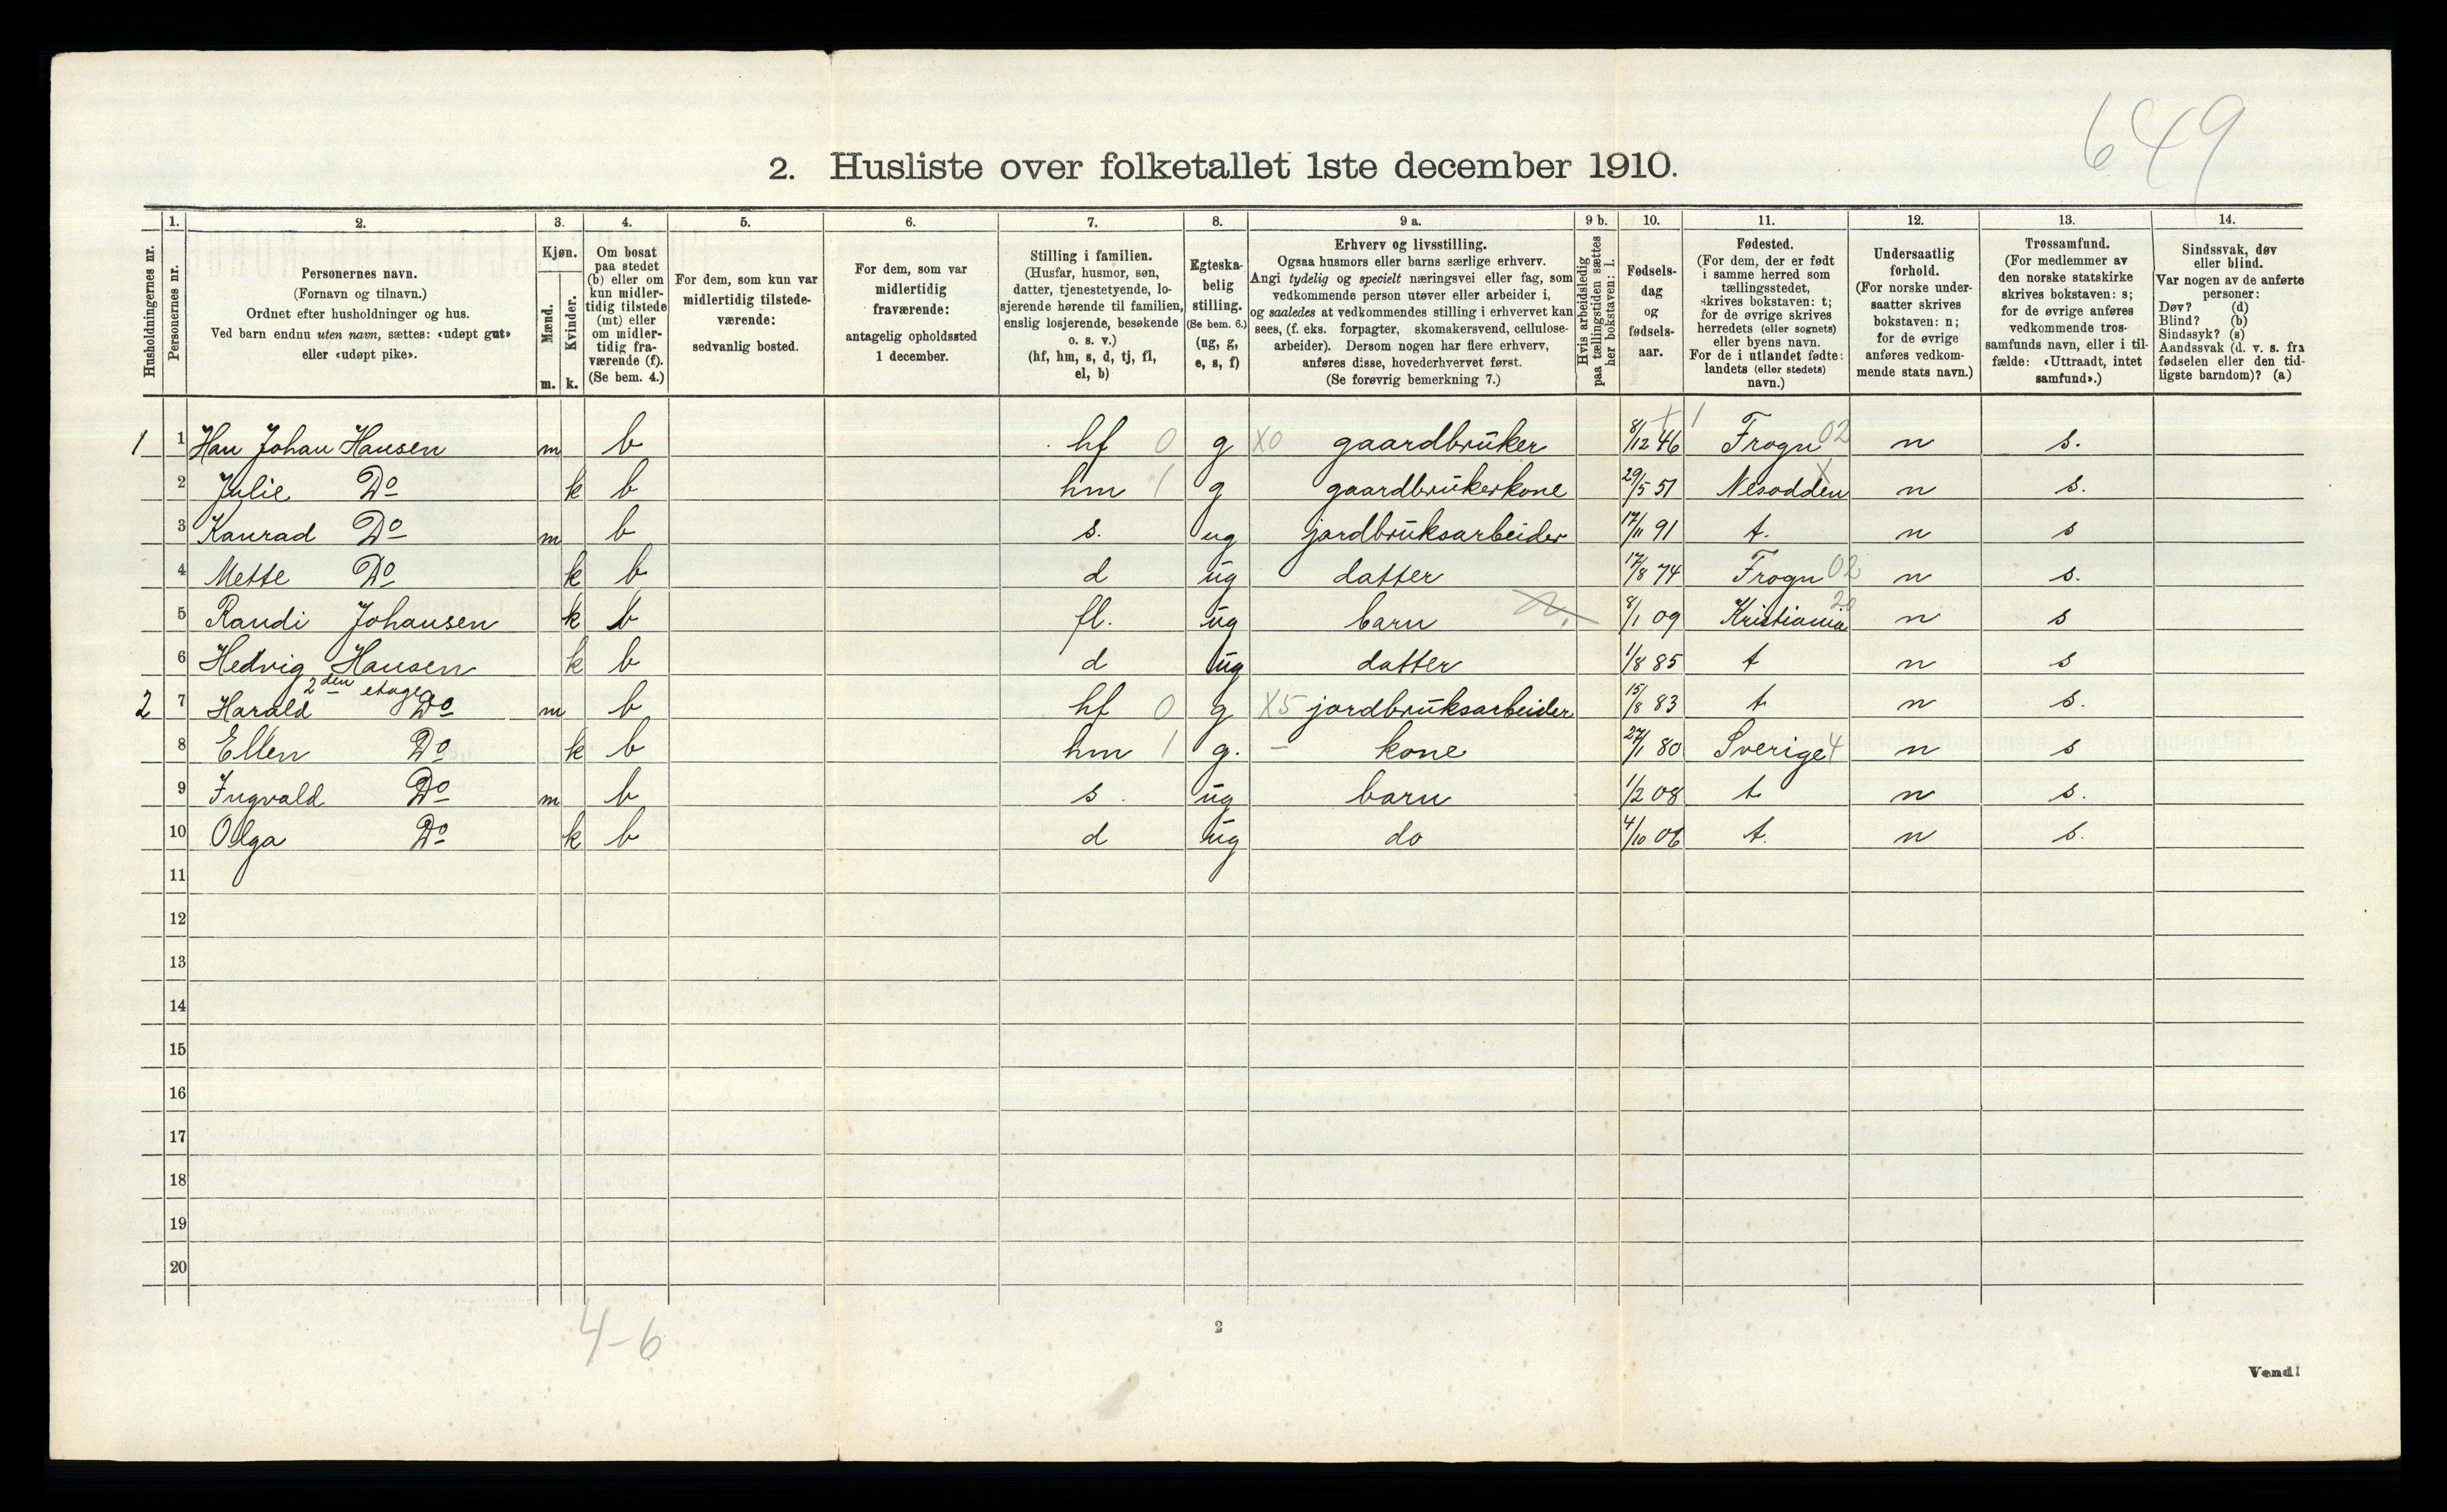 649
2. Husliste over folketallet 1ste december 1910.
Husholdningernes nr.
1. Personernes nr.
2. Personernes navn. (Fornavn og tilnavn.) Ordnet efter husholdninger og hus. Ved barn endnu uten navn, sættes: «udøpt gut» eller «udøpt pike».
3. Kjøn. Mænd. m. Kvinder. k.
4. Om bosat paa stedet (b) eller om kun midlertidig tilstede (mt) eller om midlertidig fraværende (f). (Se bem. 4.)
5. For dem, som kun var midlertidig tilstedeværende: sedvanlig bosted.
6. For dem, som var midlertidig fraværende: antagelig opholdssted 1 december.
7. Stilling i familien. (Husfar, husmor, søn, datter, tjenestetyende, losjerende hørende til familien, enslig losjerende, besøkende o. s. v.) (hf, hm, s, d, tj, fl, el, b)
8. Egteskabelig stilling. (Se bem. 6.) (ug, g, e, s, f)
9 a. Erhverv og livsstilling. Ogsaa husmors eller barns særlige erhverv. Angi tydelig og specielt næringsvei eller fag, som vedkommende person utøver eller arbeider i, og saaledes at vedkommendes stilling i erhvervet kan sees, (f. eks. forpagter, skomakersvend, cellulosearbeider). Dersom nogen har flere erhverv, anføres disse, hovederhvervet først. (Se forøvrig bemerkning 7.)
9 b. Hvis arbeidsledig paa tællingstiden sættes her bokstaven: l.
10. Fødselsdag og fødselsaar.
11. Fødested. (For dem, der er født i samme herred som tællingsstedet, skrives bokstaven: t; for de øvrige skrives herredets (eller sognets) eller byens navn. For de i utlandet fødte: landets (eller stedets) navn.)
12. Undersaatlig forhold. (For norske undersaatter skrives bokstaven: n; for de øvrige anføres vedkommende stats navn.)
13. Trossamfund. (For medlemmer av den norske statskirke skrives bokstaven: s; for de øvrige anføres vedkommende trossamfunds navn, eller i tilfælde: «Uttraadt, intet samfund».)
14. Sindssvak, døv eller blind. Var nogen av de anførte personer: Døv? (d) Blind? (b) Sindssyk? (s) Aandssvak (d. v. s. fra fødselen eller den tidligste barndom)? (a)
1 1 Han Johan Hansen m b hf 0 g X0 gaardbruker 8/12 46 Frogn 02 n s.
2 Julie Do k b hm 1 g gaardbrukerkone 29/5 51 Nesodden X n s.
3 Konrad Do m b s. ug jordbruksarbeider 17/11 91 t. n s
4 Mette Do k b d ug datter 17/8 74 Frogn 02 n s.
5 Randi Johansen k b fl. ug barn 8/1 09 Kristiania 20 n s
6 Hedvig Hansen k b d ug datter 1/8 85 t n s
2den etage
2 7 Harald Do m b hf 0 g X5 jordbruksarbeider 15/8 83 t n s.
8 Ellen Do k b hm 1 g. - kone 27/1 80 Sverige 4 n s
9 Ingvald Do m b s. ug barn 1/2 08 t n s.
10 Olga Do k b d ug do 4/10 06 t. n s.
11
12
13
14
15
16
17
18
19
20
4-6
2
Vend!